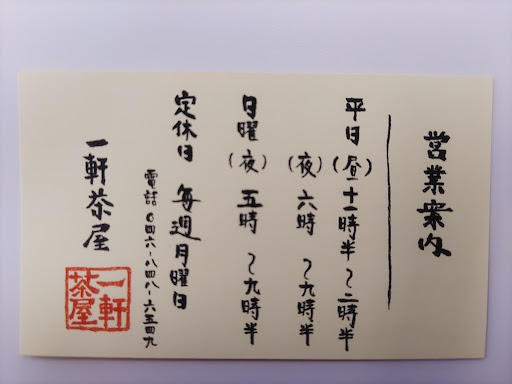 営業案内
平日(昼)十一時半〜二時半
(夜)六時〜九時半
日曜(夜)五時〜九時半
定休日 毎週月曜日
電話〇四六-八四八-六五四九
一軒茶屋
一軒茶屋